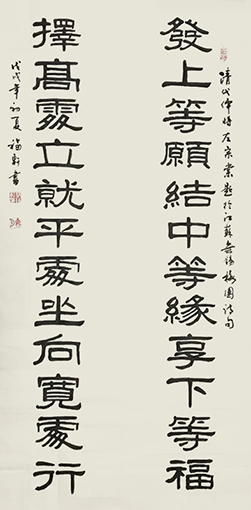 清代偉將左宗棠題於江蘇無錫梅園詩句
發上等願結中等緣享下等福
擇髙處立就平處坐向寬處行
戊戌年初夏福